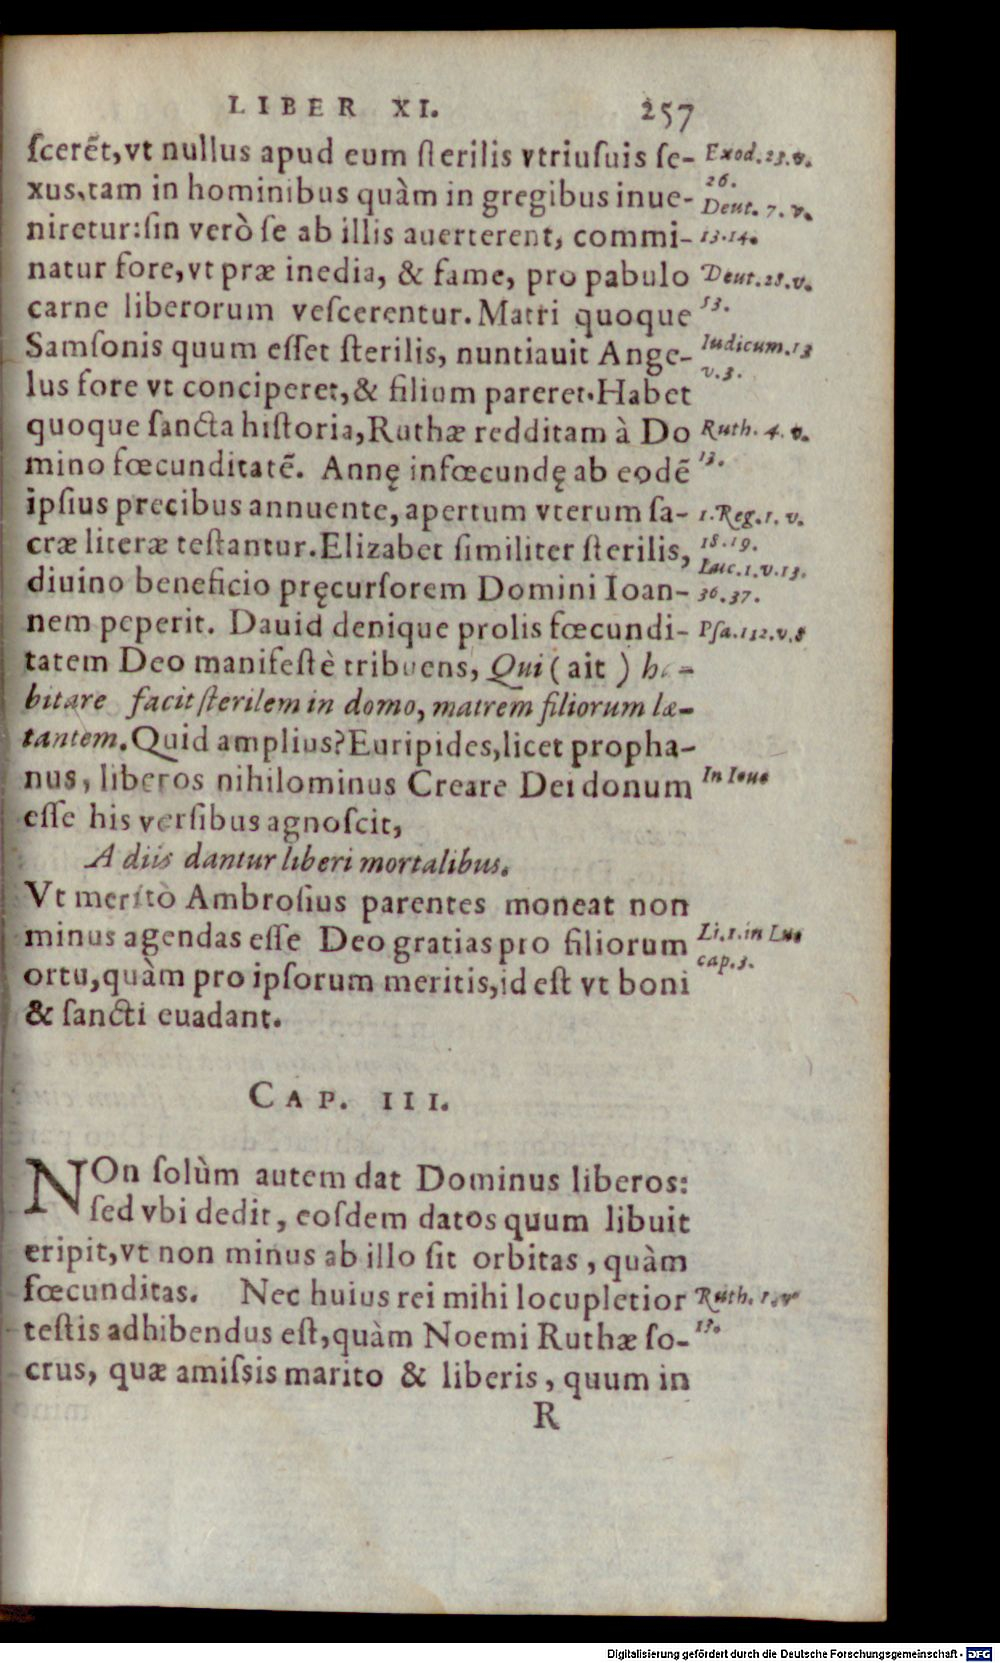 LIBER XI. 257
ſcerẽt,vt nullus apud eum ſterilis vtriuſuis ſe-
xus,tam in hominibus quàm in gregibus inue-
niretur:ſin verò ſe ab illis auerterent, commi-
natur fore,vt præ inedia, & fame, pro pabulo
carne liberorum veſcerentur. Matri quoque
Samſonis quum eſſet ſterilis, nuntiauit Ange-
lus fore vt conciperet,& filium pareret.Habet
quoque ſancta hiſtoria,Ruthæ redditam à Do
mino fœcunditatẽ. Annę infœcundę ab eodẽ
ipſius precibus annuente, apertum vterum ſa-
cræ literæ teſtantur.Elizabet ſimiliter ſterilis,
diuino beneficio pręcurſorem Domini Ioan-
nem peperit. Dauid denique prolis fœcundi-
tatem Deo manifeſtè tribuens, Qui ( ait ) ha-
bitare facit ſterilem in domo, matrem filiorum læ-
tantem. Quid amplius? Euripides,licet propha-
nus, liberos nihilominus Creare Dei donum
eſſe his verſibus agnoſcit,
A diis dantur liberi mortalibus.
Vt meritò Ambroſius parentes moneat non
minus agendas eſſe Deo gratias pro filiorum
ortu,quàm pro ipſorum meritis,id eſt vt boni
& ſancti euadant.
Exod.23.v.
26.
Deut. 7. v.
13.14.
Deut.28.v.
53.
Iudicum.13
v.3.
Ruth. 4. v.
13.
1.Reg.1. v.
18.19.
Luc.1.v.13.
36.37.
Pſa.112.v.8
In Ione
Li.1.in Luc
cap.3.
CAP. III.
NOn ſolùm autem dat Dominus liberos:
ſed vbi dedit, eoſdem datos quum libuit
eripit,vt non minus ab illo ſit orbitas , quàm
fœcunditas. Nec huius rei mihi locupletior
teſtis adhibendus eſt,quàm Noemi Ruthæ ſo-
crus, quæ amiſsis marito & liberis , quum in
Ruth. 1. v
13.
R
Digitalisierung gefördert durch die Deutsche Forschungsgemeinschaft - DFG